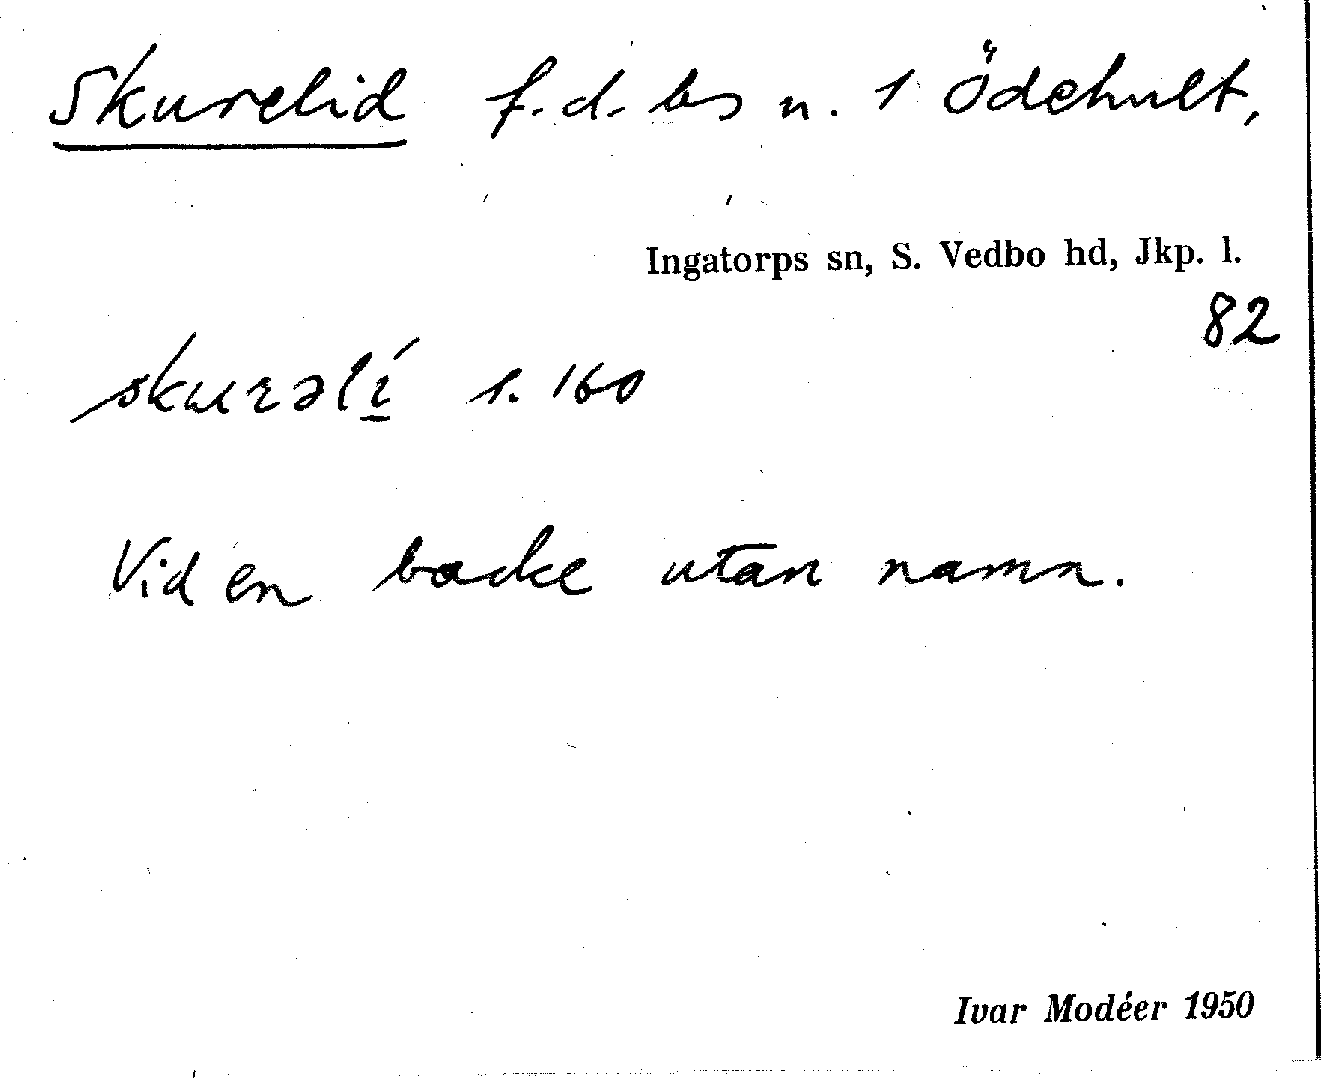 Skurelid f.d. bs u. 1 Ödehult,
Ingatorps sn, S. Vedbo hd, Jkp. l.
82
skurəlí s. 160
Vid en backe utan namn.
Ivar Modéer 1950